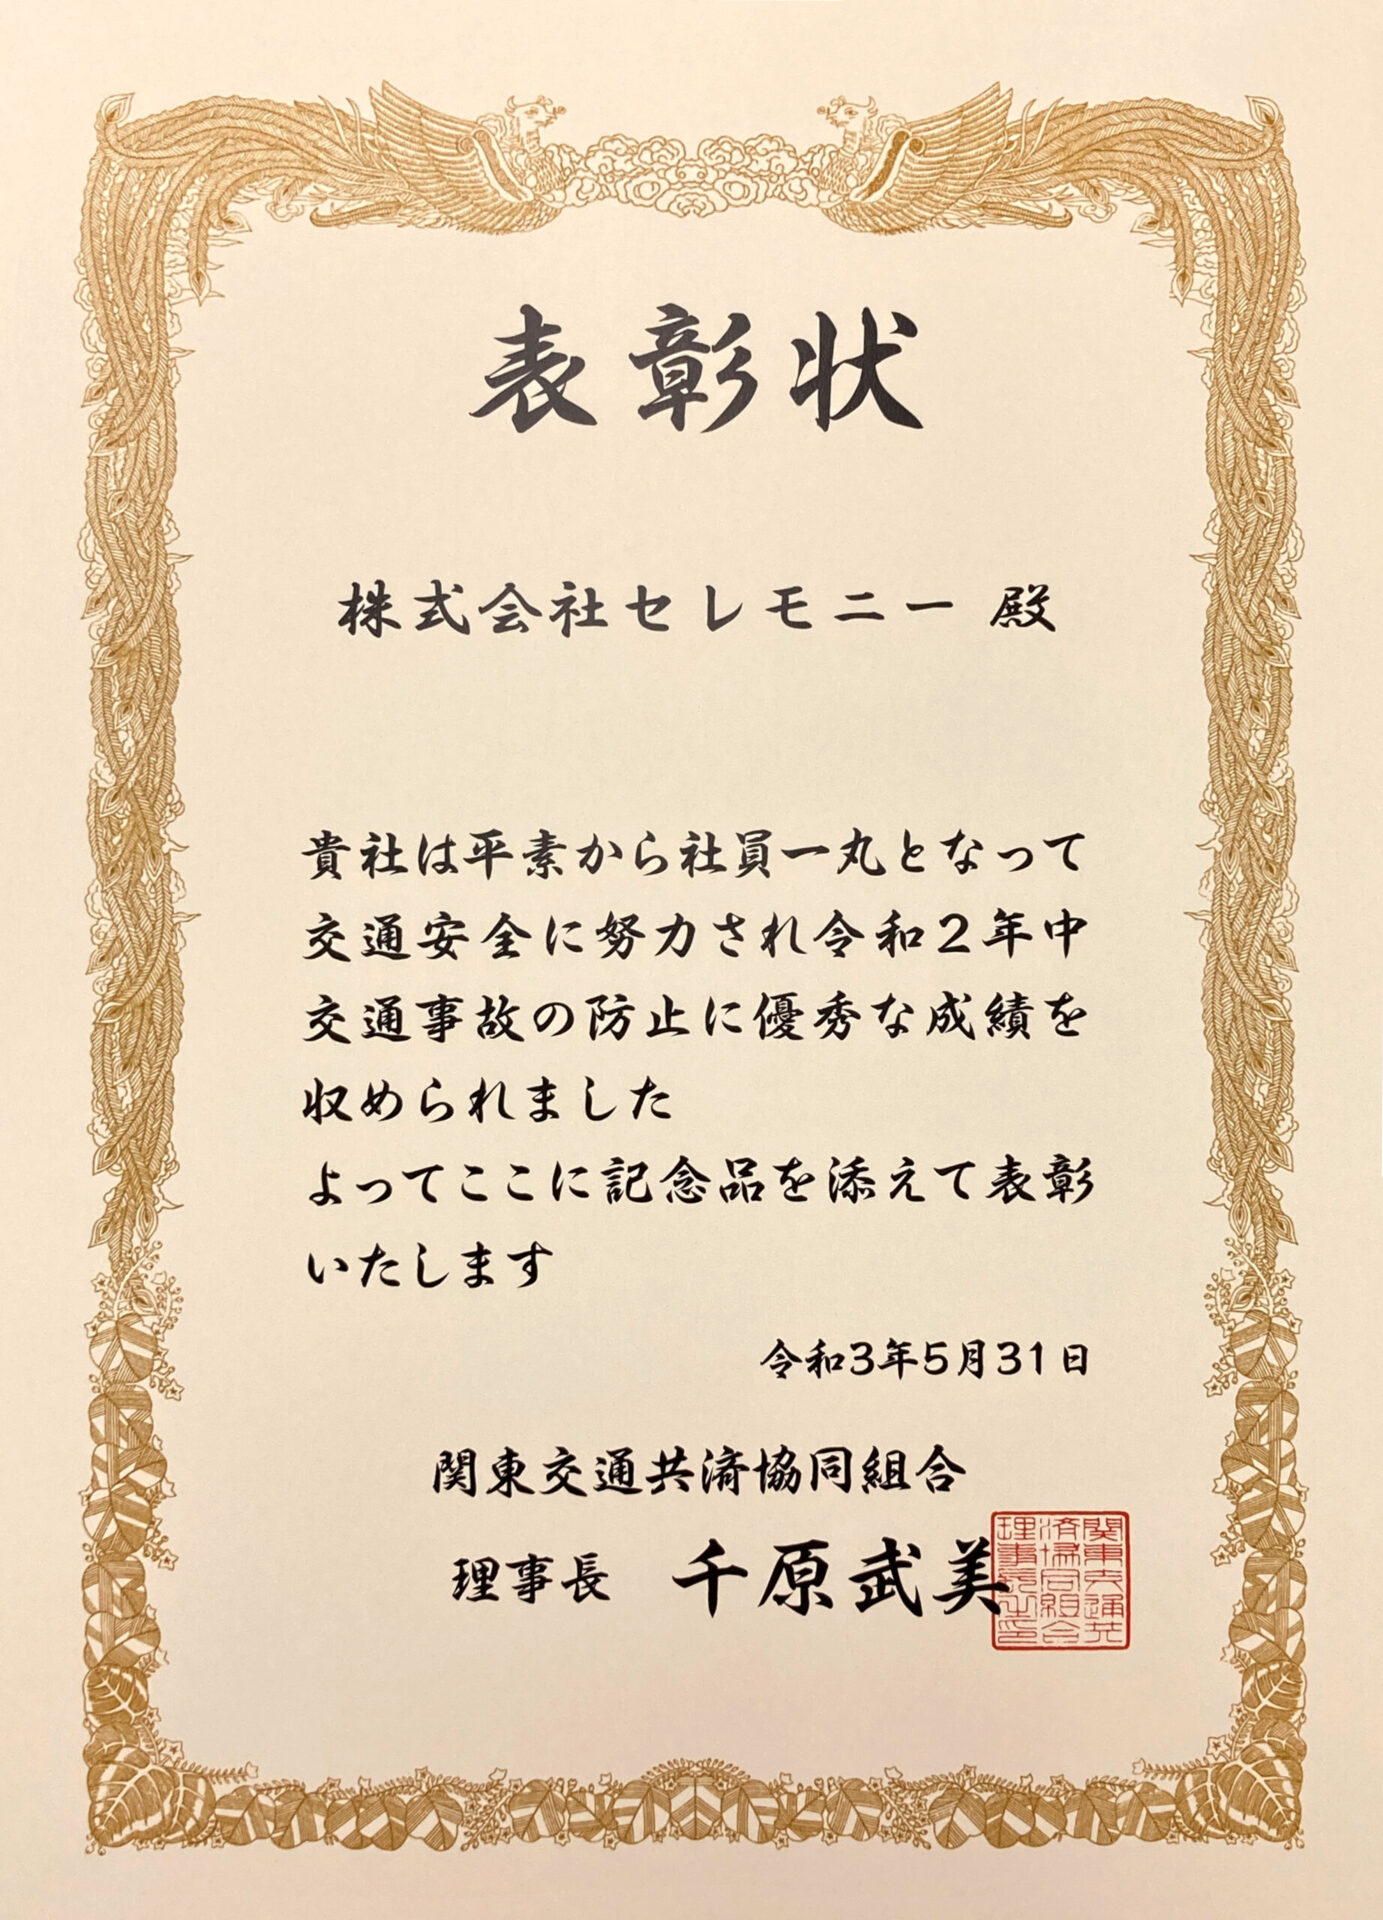 表彰状
株式会社セレモニー 殿
貴社は平素から社員一丸となって
交通安全に努力され令和2年中
交通事故の防止に優秀な成績を
収められました
よってここに記念品を添えて表彰
いたします
令和3年5月31日
関東交通共済協同組合
理事長 千原武美
関東交通共
済協同組合
理事長之印